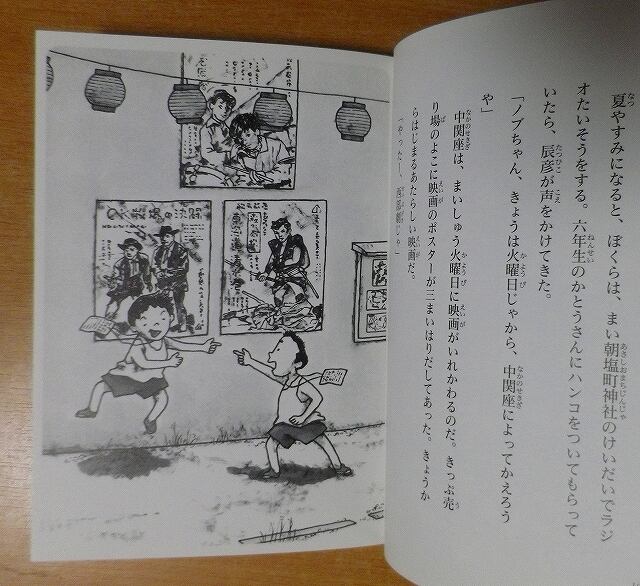 夏やすみになると、ぼくらは、まい朝塩町神社のけいだいでラジ
オたいそうをする。六年生のかとうさんにハンコをついてもらって
いたら、辰彦が声をかけてきた。
「ノブちゃん、きょうは火曜日じゃから、中関座によってかえろう
や」
中関座は、まいしゅう火曜日に映画がいれかわるのだ。きっぷ売
り場のよこに映画のポスターが三まいはりだしてあった。きょうか
らはじまるあたらしい映画だ。
「やったー、西部劇じゃ」
OK牧場の決斗